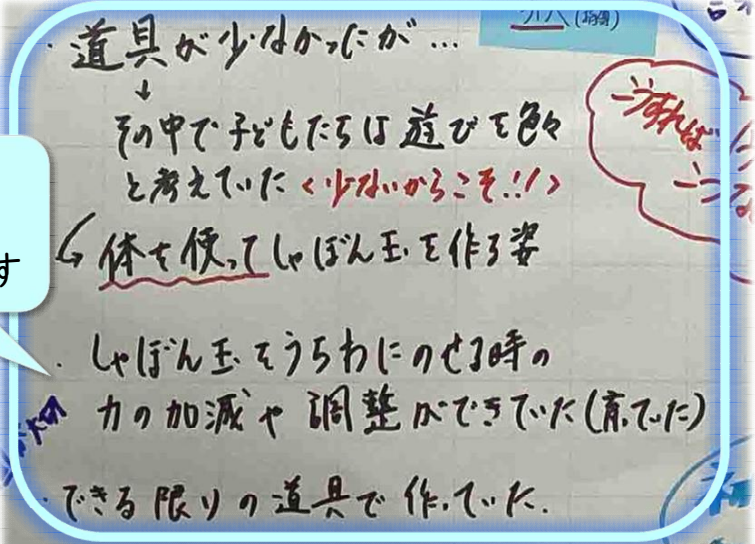 ・道具が少なかったが…
↓
その中で子どもたちは遊びを色々
と考えていた<少ないからこそ!!>
体を使ってしゃぼん玉を作る姿
・しゃぼん玉をうちわにのせる時の
力の加減や調整ができていた(育っていた)
・できる限りの道具で作っていた.
す
うすれば